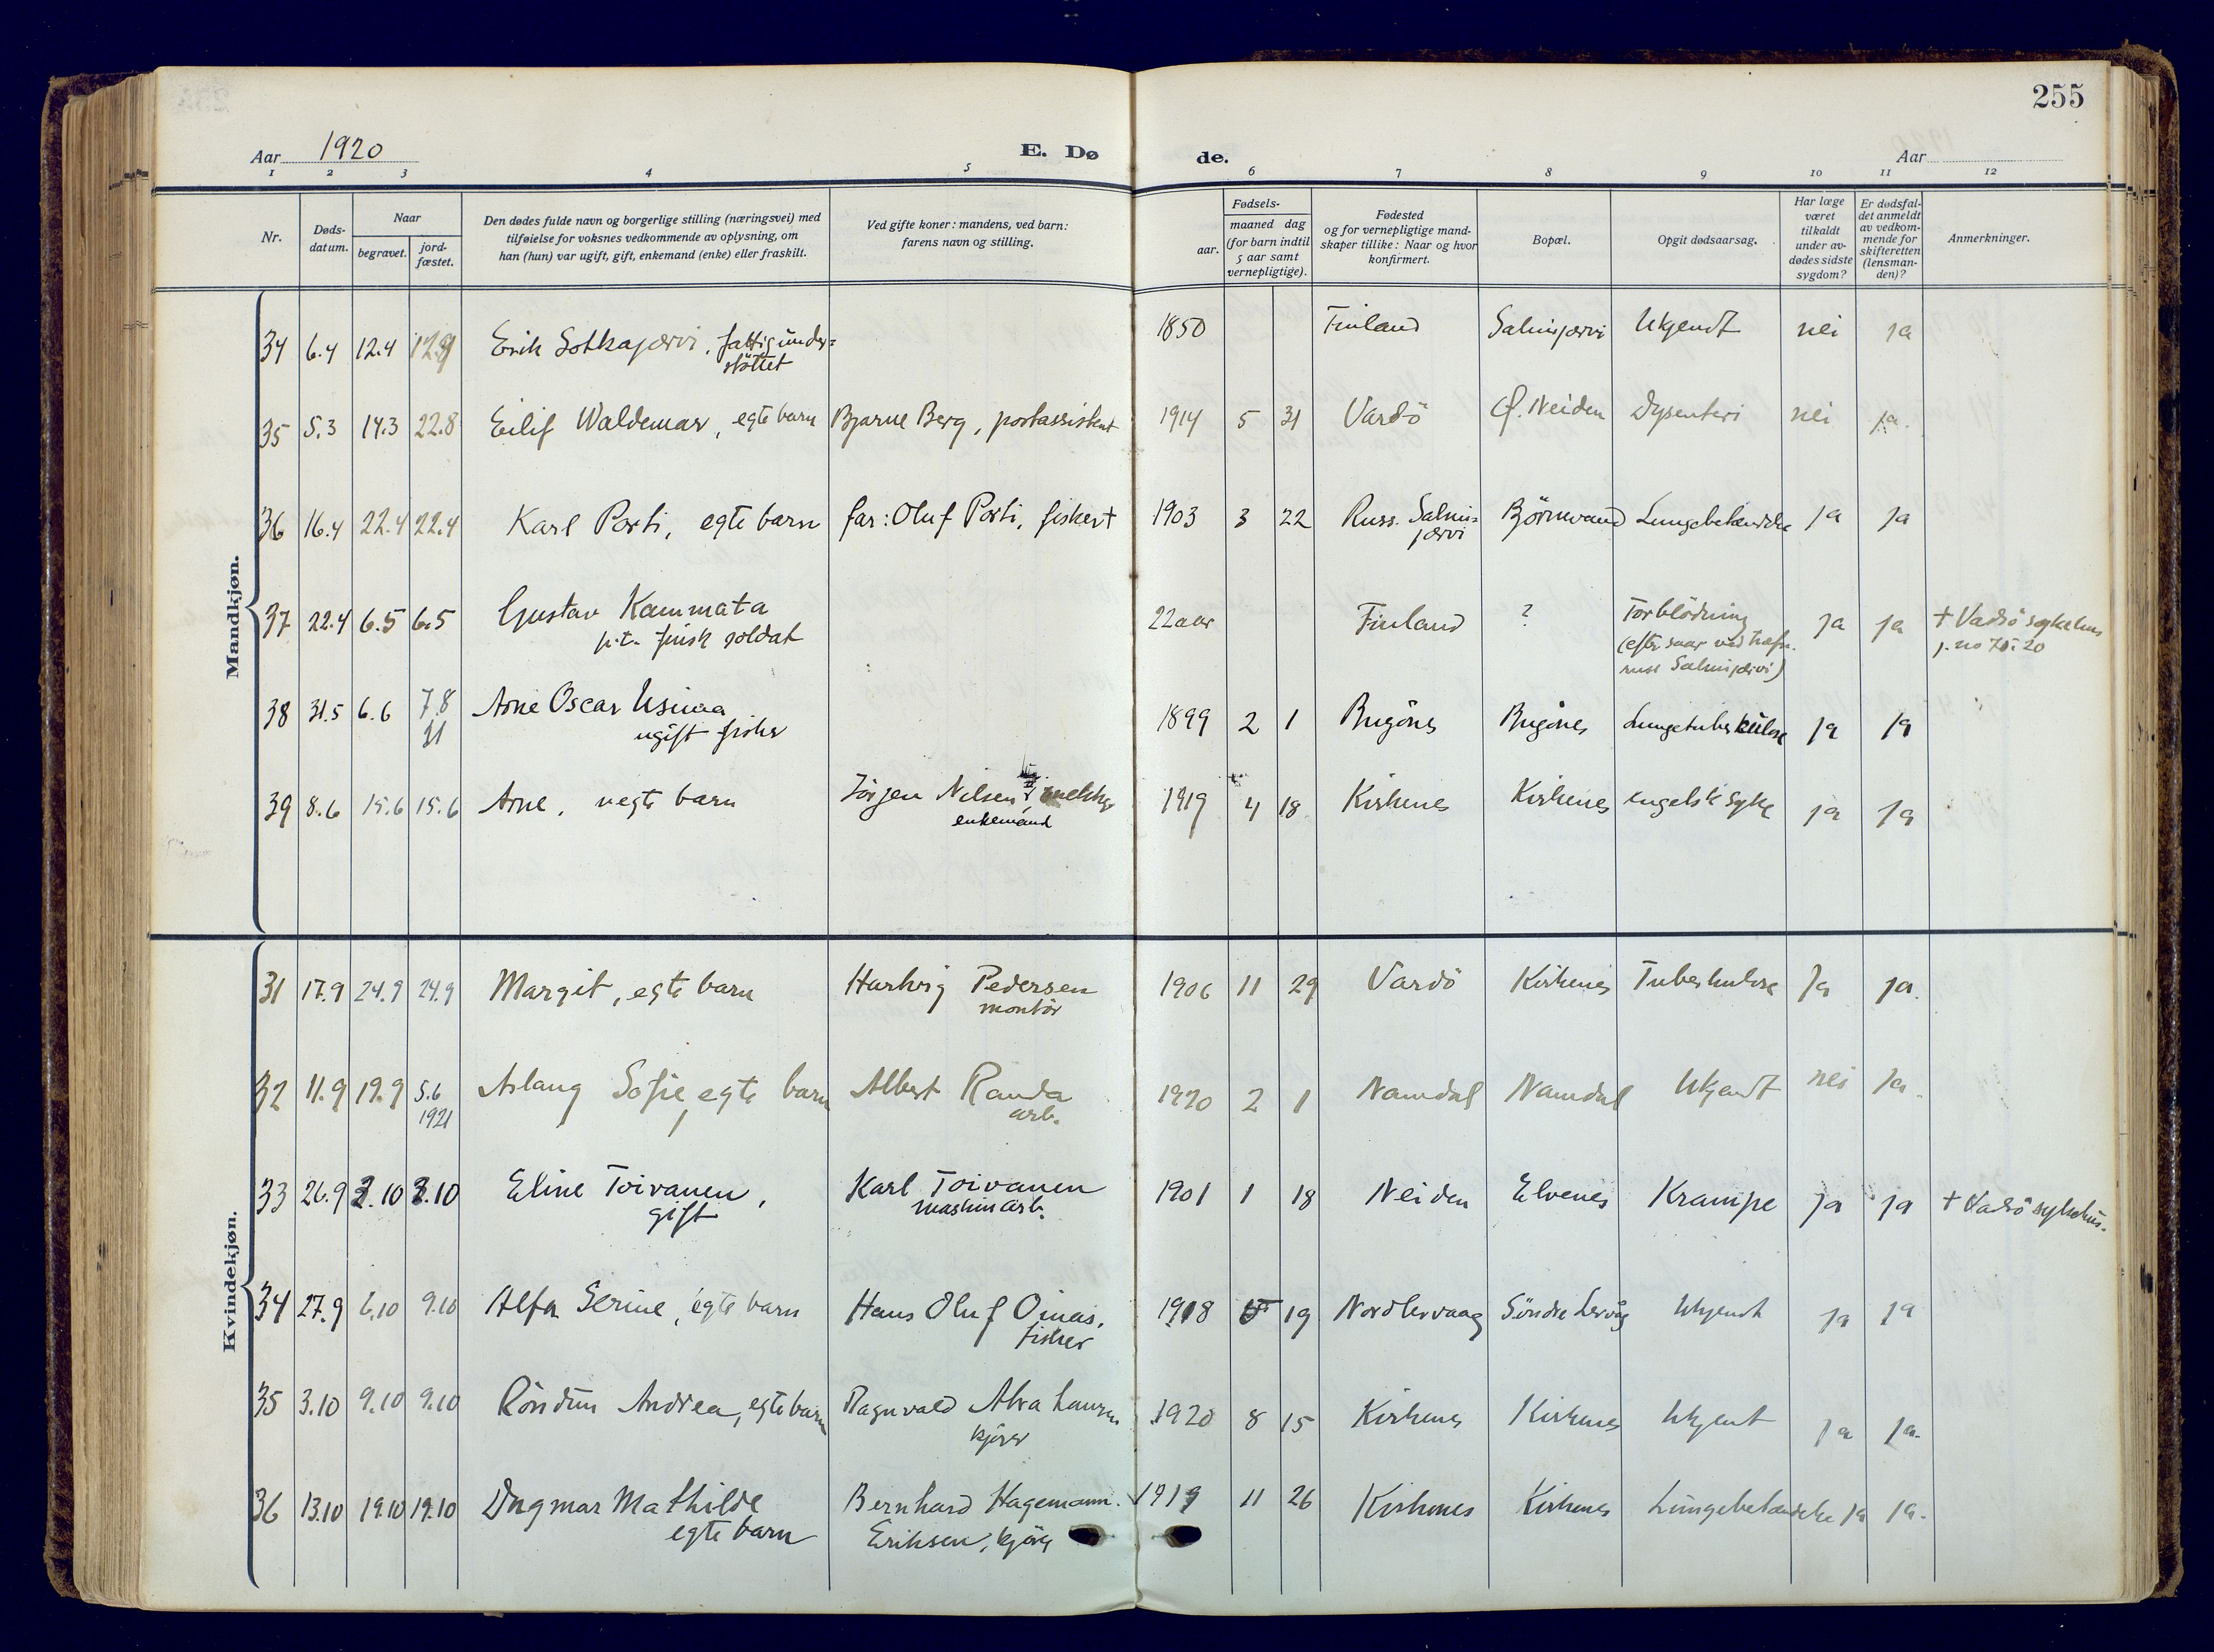 255
Aar 1920
E. Dø
de.
Aar
1 2 3 4 5 6 7 8 9 10 11 12
Nr.
Døds-
datum.
Naar
begravet.
jord-
fæstet.
Den dødes fulde navn og borgerlige stilling (næringsvei) med
tilføielse for voksnes vedkommende av oplysning, om
han (hun) var ugift, gift, enkemand (enke) eller fraskilt.
Ved gifte koner: mandens, ved barn:
farens navn og stilling.
Fødsels-
aar.
maaned dag
(for barn indtil
5 aar samt
vernepligtige).
Fødested
og for vernepligtige mand-
skaper tillike: Naar og hvor
konfirmert.
Bopæl.
Opgit dødsaarsag.
Har læge
været
tilkaldt
under av-
dødes sidste
sygdom?
Er dødsfal-
det anmeldt
av vedkom-
mende for
skifteretten
(lensman-
den)?
Anmerkninger.
Mandkjøn.
34 6.4 12.4 Erik Sotkajærvi, fattigunder=
støttet
1850 Finland Salmijærvi Ukjendt nei ja
35 5.3 14.3 22.8 Eilif Waldemar, egte barn Bjarne Berg, postassistent 1914 5 31 Vardö Neiden Dysenteri nei ja.
36 16.4 22.4 22.4 Karl Porti, egte barn far: Oluf Porti, fisker † 1903 3 22 Russ. Salmi=
jærvi
Björnevand Lungebetændelse ja ja
37 22.4 6.5 6.5 Gustav Kammata
p.t. finsk soldat
22 aar Finland ? Forblödning
(efter saar ved træfn.
russ Salmijærvi)
ja ja † Vadsö sykehus
38 31.5 6.6 7.8
21
Arne Oscar Usima
ugift fisker
1899 2 1 Bugönes Bugönes Lungetuberkulose ja ja
39 8.6 15.6 15.6 Arne, uegte barn Jörgen Nilsen, snekker
enkemand
1919 4 18 Kirkenes Kirkenes engelsk syke ja ja
Kvindekjøn.
31 17.9 24.9 24.9 Margit, egte barn Hartvig Pedersen
montör
1906 11 29 Vardö Kirkenes Tuberkulose ja ja.
32 11.9 19.9 5.6
1921
Aslaug Sofie, egte barn Albert Randa
arb.
1920 2 1 Namdal Namdal Ukjendt nei ja.
33 26.9 3.10 3.10 Eline Toivanen,
gift
Karl Toivanen
maskinarb.
1901 1 18 Neiden Elvenes Krampe ja ja † Vadsö sykehus.
34 27.9 6.10 9.10 Alfa Serine, egte barn Hans Oluf Oinas,
fisker
1918 19 Nordlervaag Söndre Lervåg Ukjendt ja ja
35 3.10 9.10 9.10 Andrea, egte barn Ragnvald Abrahamsen
kjörer
1920 8 15 Kirkenes Kirkenes Ukjent ja ja.
36 13.10 19.10 19.10 Dagmar Mathilde
egte barn
Bernhard Hagemann
Eriksen, kjörer
1919 11 26 Kirkenes Kirkenes Lungebetændelse ja ja.